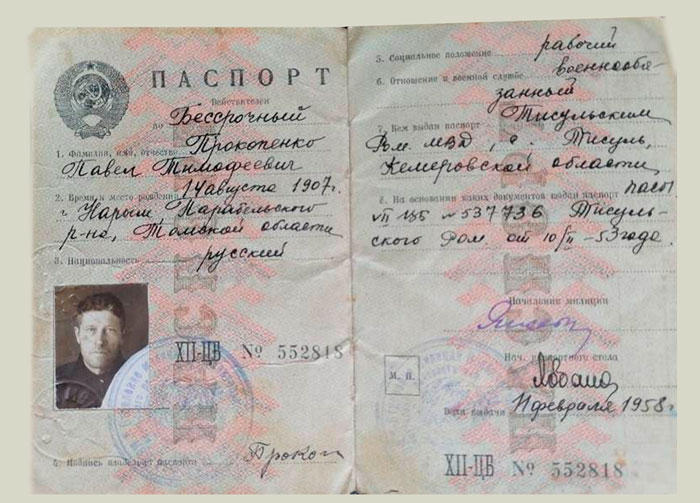 ПАСПОРТ
Действителен
по Бессрочный
Прокопенко
1. Фамилия, имя, отчество
Павел Тимофеевич
14 августа 1907г.
2. Время и место рождения
г. Нарым, Парабельского
р-на, Томской области
русский
3. Национальность
XII-ЦБ № 552818
4. Подпись владельца паспорта Прокоп
рабочий
5. Социальное положение
военнообя-
6. Отношение к военной службе
занный
Тисульским
7. Кем выдан паспорт
Р.м. МВД, с. Тисуль,
Кемеровской области
8. На основании каких документов выдан паспорт
VII ЦБ № 537736 Тисуль-
ского Ром. от 10/II-53 года.
Начальник милиции
Нач. паспортного стола
М. П.
Дата выдачи
11 февраля 1958 г.
XII-ЦБ № 552818